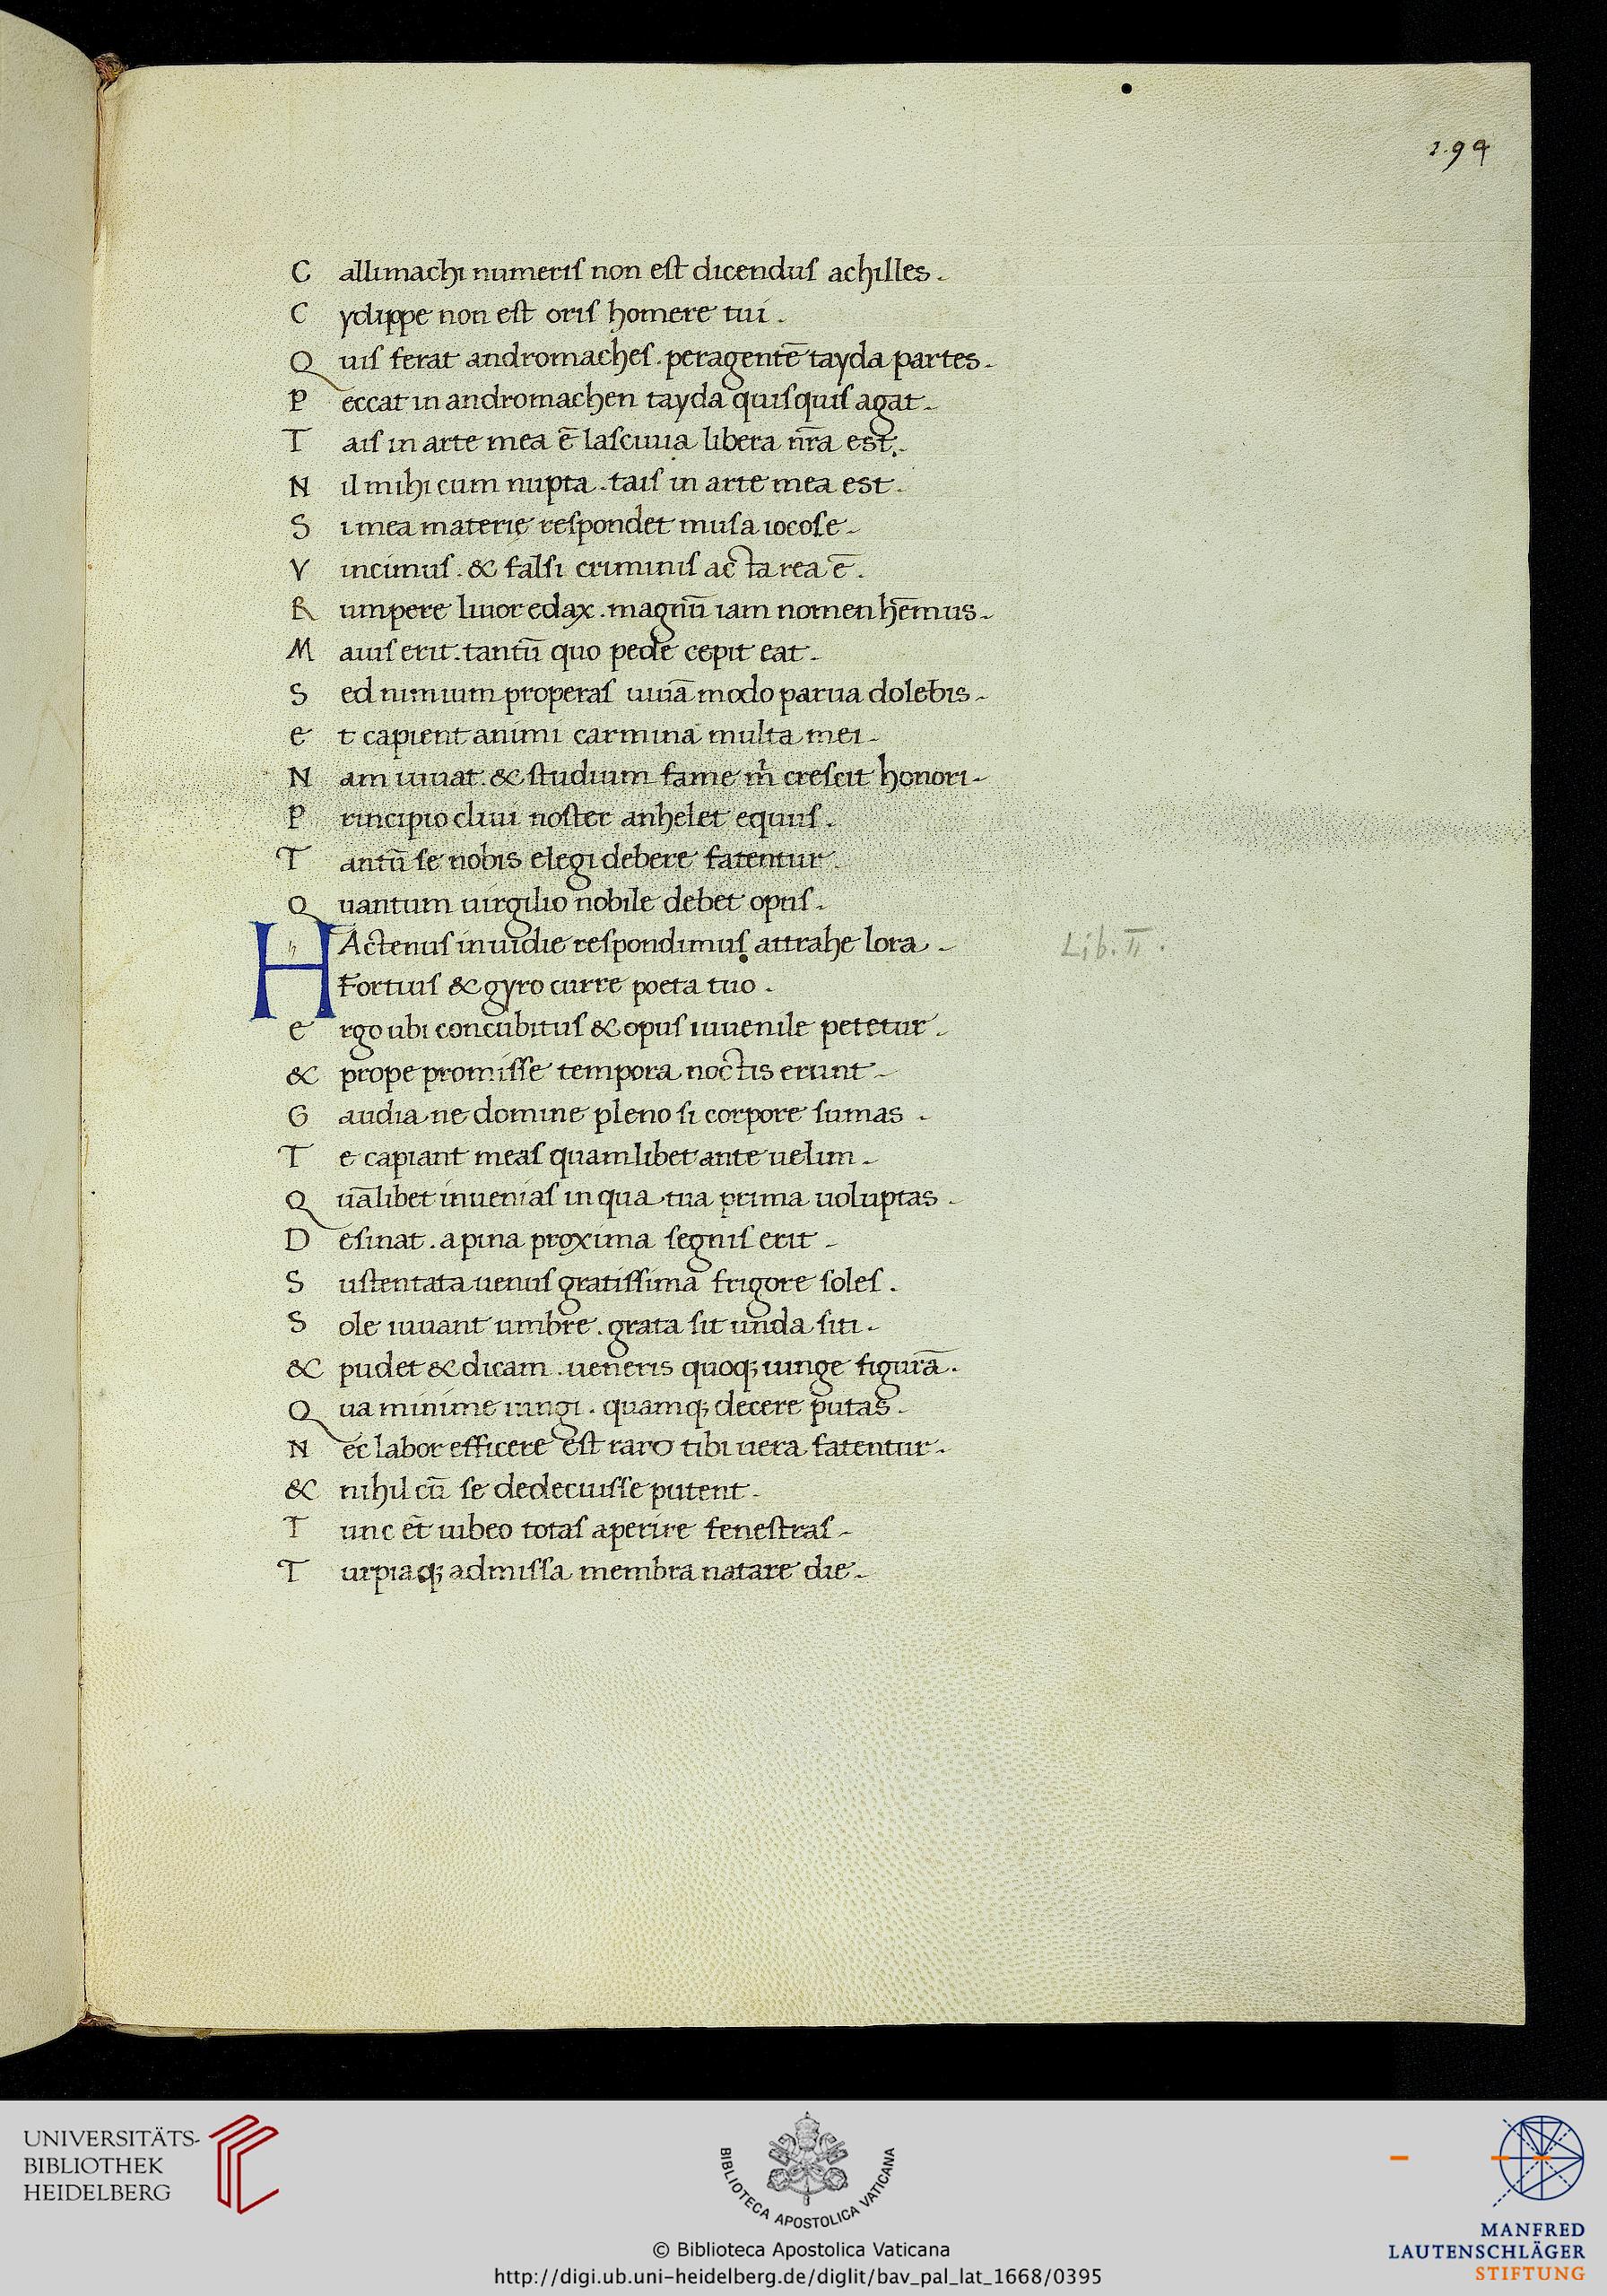 194
C allimachi numeris non est dicendus achilles.
C ydippe non est oris homere tui.
Q uis ferat andromaches. peragentē tayda partes.
P eccat in andromachen tayda quisquis agat.
T ais in arte mea ē lasciuia libera nr̄a est.
N il mihi cum nupta. tais in arte mea est.
S i mea materię respondet musa iocose.
V incimus. & falsi criminis acta rea ē.
R umpere liuor edax. magnū iam nomen hēmus.
M aius erit. tantū quo pede cepit eat.
S ed nimium properas uiuā modo parua dolebis.
e t capient animi carmina multa mei.
N am iuuat. & studium fame m̄ crescit honori.
P rincipio cliui noster anhelet equus.
T antū se nobis elegi debere fatentur.
Q uantum uirgilio nobile debet opus.
HActenus inuidie respondimus attrahe lora. Lib. II.
Fortius & gyro curre poeta tuo.
e rgo ubi concubitus & opus iuuenile petetur.
& prope promisse tempora noctis erunt.
G audia ne domine pleno si corpore sumas.
T e capiant meas quamlibet ante uelim.
Q uālibet inuenias in qua tua prima uoluptas.
D esinat. a pina proxima segnis erit.
S ustentata uenus gratissima frigore soles.
S ole iuuant umbre. grata sit unda siti.
& pudet & dicam. ueneris quoq; iunge figurā.
Q ua minime iungi. quamq; decere putas.
N ec labor efficere est raro tibi uera fatentur.
& nihil cū se dedecuisse putent.
T unc et̄ iubeo totas aperire fenestras.
T urpiaq; admissa membra natare die.
UNIVERSITÄTS-
BIBLIOTHEK
HEIDELBERG
BIBLIOTECA APOSTOLICA VATICANA
© Biblioteca Apostolica Vaticana
http://digi.ub.uni-heidelberg.de/diglit/bav_pal_lat_1668/0395
MANFRED
LAUTENSCHLÄGER
STIFTUNG